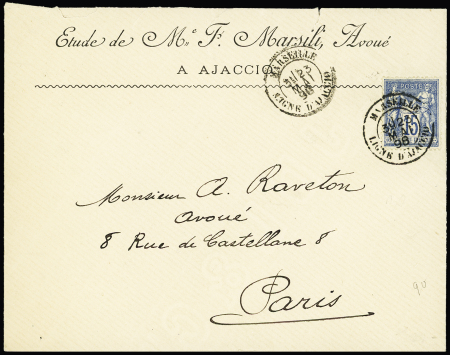 Etude de Me F. Marsili, Avoué
A AJACCIO
MARSEILLE
23
MAI
98
LIGNE D'AJACCIO
POSTE
15
MARSEILLE
98
LIGNE D'AJACCIO
Monsieur A. Raveton
avoué
8 Rue de Castellane 8
Paris
90